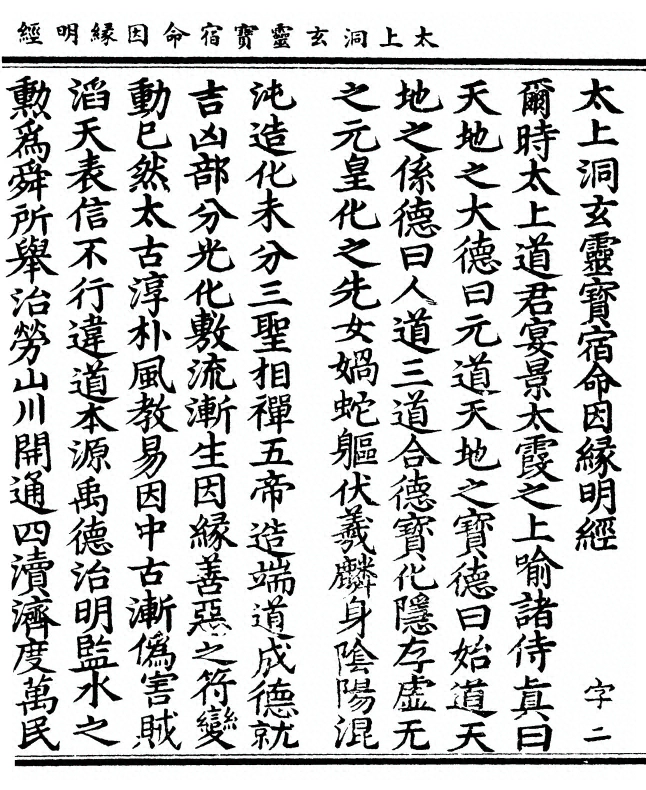 太上洞玄靈寶宿命因緣明經
太上洞玄靈寶宿命因緣明經 字二
爾時太上道君宴景太霞之上喻諸侍真曰
天地之大德曰元道天地之寶德曰始道天
地之係德曰人道三道合德寶化隱存虛无
之元皇化之先女媧蛇軀伏羲麟身陰陽混
沌造化未分三聖相禪五帝造端道成德就
吉凶部分光化敷流漸生因緣善惡之符變
動已然太古淳朴風教易因中古漸僞害賊
滔天表信不行違道本源禹德治明監水之
勲爲舜所舉治勞山川開通四瀆濟度萬民